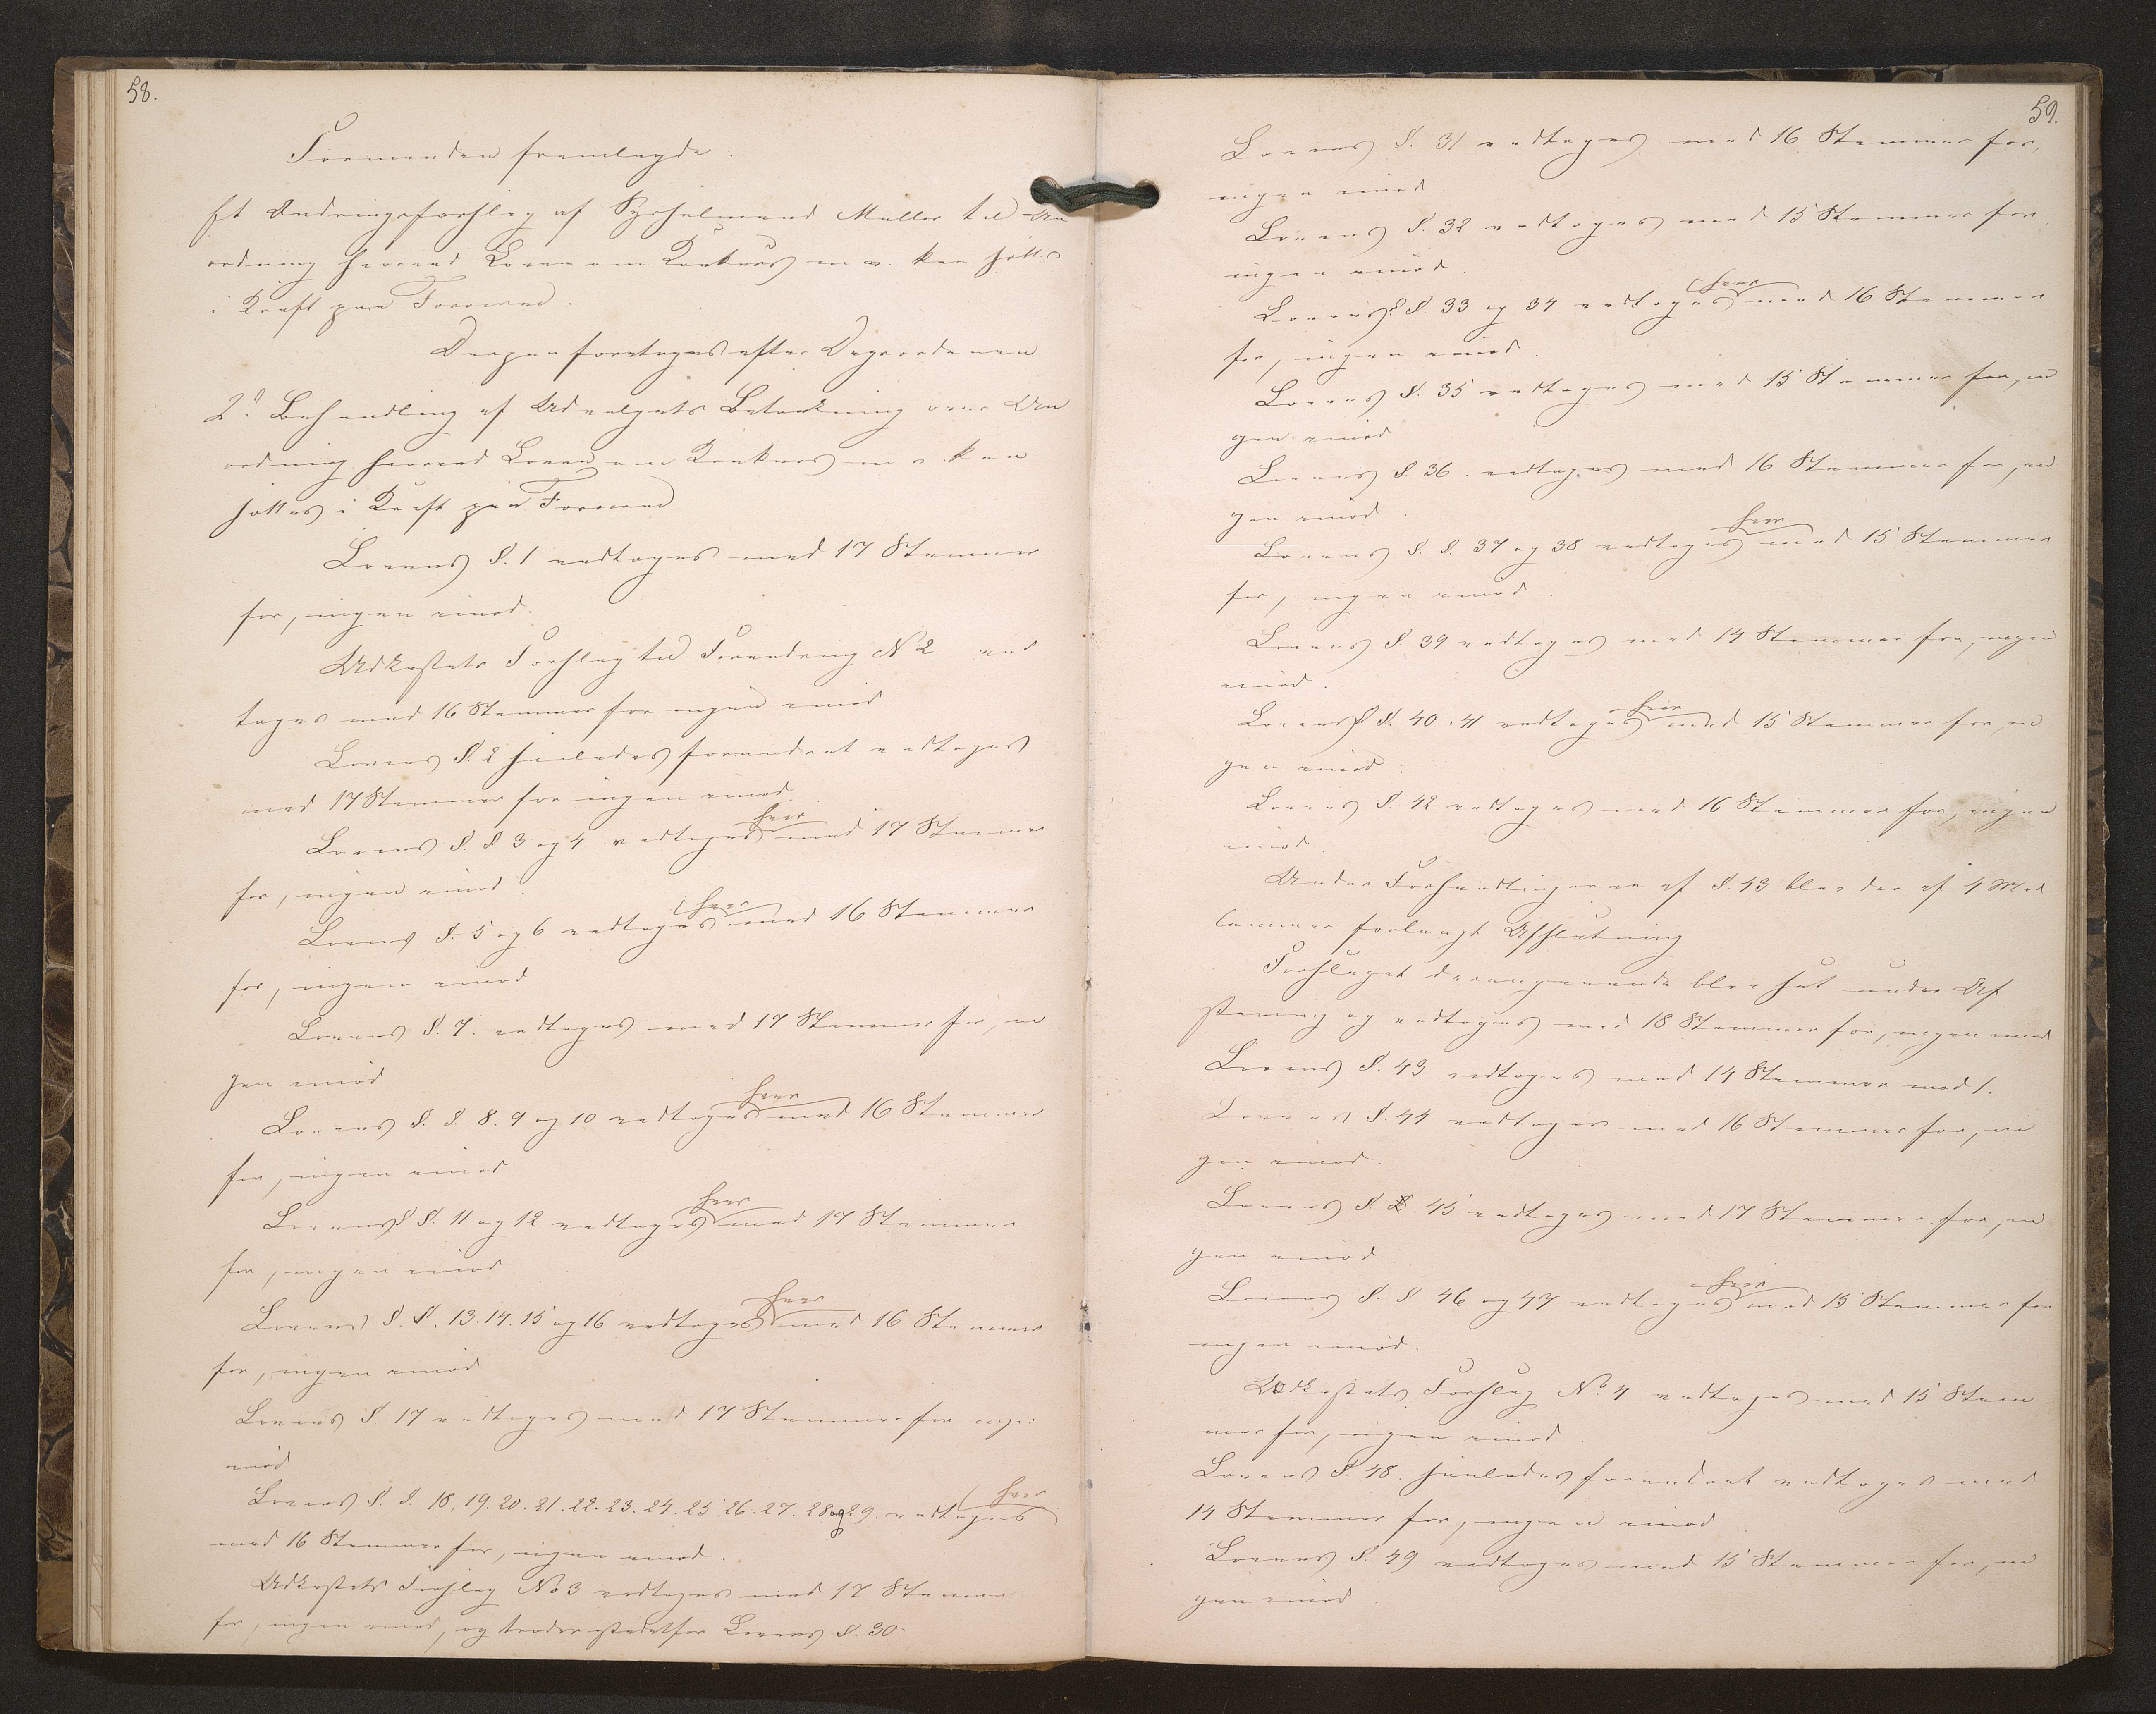 58.
Formanden fremlagde:
Et Ændringsforslag af Sysselmand Müller til An
ordning hvorved Loven om Konkurs m. v. kan sættes
i Kraft paa Færøerne.
Derpaa foretoges efter Dagsordenen
2d Behandling af Udvalgets Betænkning over An
ordning hvorved Loven om Konkurs m v. kan
sættes i Kraft paa Færøerne
Lovens §. 1 vedtoges med 17 Stemmer
for, ingen imod.
Udkastets Forslag til Forandring No 2 ved
toges med 16 Stemmer for ingen imod
Lovens §. 2 saaledes forandret vedtoges
med 17 Stemmer for ingen imod.
hver
Lovens §. § 3 og 4 vedtoges med 17 Stemmer
for, ingen imod.
hver
Lovens §. 5 og 6 vedtoges med 16 Stemmer
for, ingen imod
Lovens §. 7. vedtoges med 17 Stemmer for, in
gen imod
hver
Lovens §. §. 8. 9 og 10 vedtoges med 16 Stemmer
for, ingen imod
hver
Lovens § §. 11 og 12 vedtoges med 17 Stemmer
for, ingen imod
hver
Lovens §. §. 13. 14. 15 og 16 vedtoges med 16 Stemmer
for, ingen imod
Lovens § 17 vedtoges med 17 Stemmer for ingen
imod
hver
Lovens §. §. 18. 19. 20. 21. 22. 23. 24. 25. 26. 27. 28 og 29. vedtoges
med 16 Stemmer for, ingen imod.
Udkastets Forslag No 3 vedtoges med 17 Stemmer
for, ingen imod, og træder istedetfor Lovens §. 30.
59.
Lovens §. 31 vedtoges med 16 Stemmer for,
ingen imod.
Lovens §. 32 vedtoges med 15 Stemmer for,
ingen imod.
hver
Lovens § §. 33 og 34 vedtoges med 16 Stemmer
for, ingen imod.
Lovens §. 35 vedtoges med 15 Stemmer for, in
gen imod
Lovens §. 36. vedtoges med 16 Stemmer for, in
gen imod.
hver
Lovens §. §. 37 og 38 vedtoges med 15 Stemmer
for, ingen imod.
Lovens §. 39 vedtoges med 14 Stemmer for, ingen
imod.
hver
Lovens § §. 40. 41 vedtoges med 15 Stemmer for, in
gen imod.
Lovens §. 42 vedtoges med 16 Stemmer for, ingen
imod.
Under Forhandlingerne af §. 43 blev der af 4 Med
lemmer forlangt Afslutning
Forslaget derangaaende blev sat under Af
stemning og vedtoges med 18 Stemmer for, ingen imod
Lovens §. 43 vedtoges med 14 Stemmer mod 1.
Lovens §. 44 vedtoges med 16 Stemmer for, in
gen imod.
Lovens §. 45 vedtoges med 17 Stemmer for, in
gen imod.
hver
Lovens §. §. 46 og 47 vedtoges med 15 Stemmer for
ingen imod.
Udkastets Forslag No. 4 vedtoges med 15 Stem
mer for, ingen imod.
Lovens §. 48. saaledes forandret vedtoges med
14 Stemmer for, ingen imod
Lovens §. 49 vedtoges med 15 Stemmer for, in
gen imod.